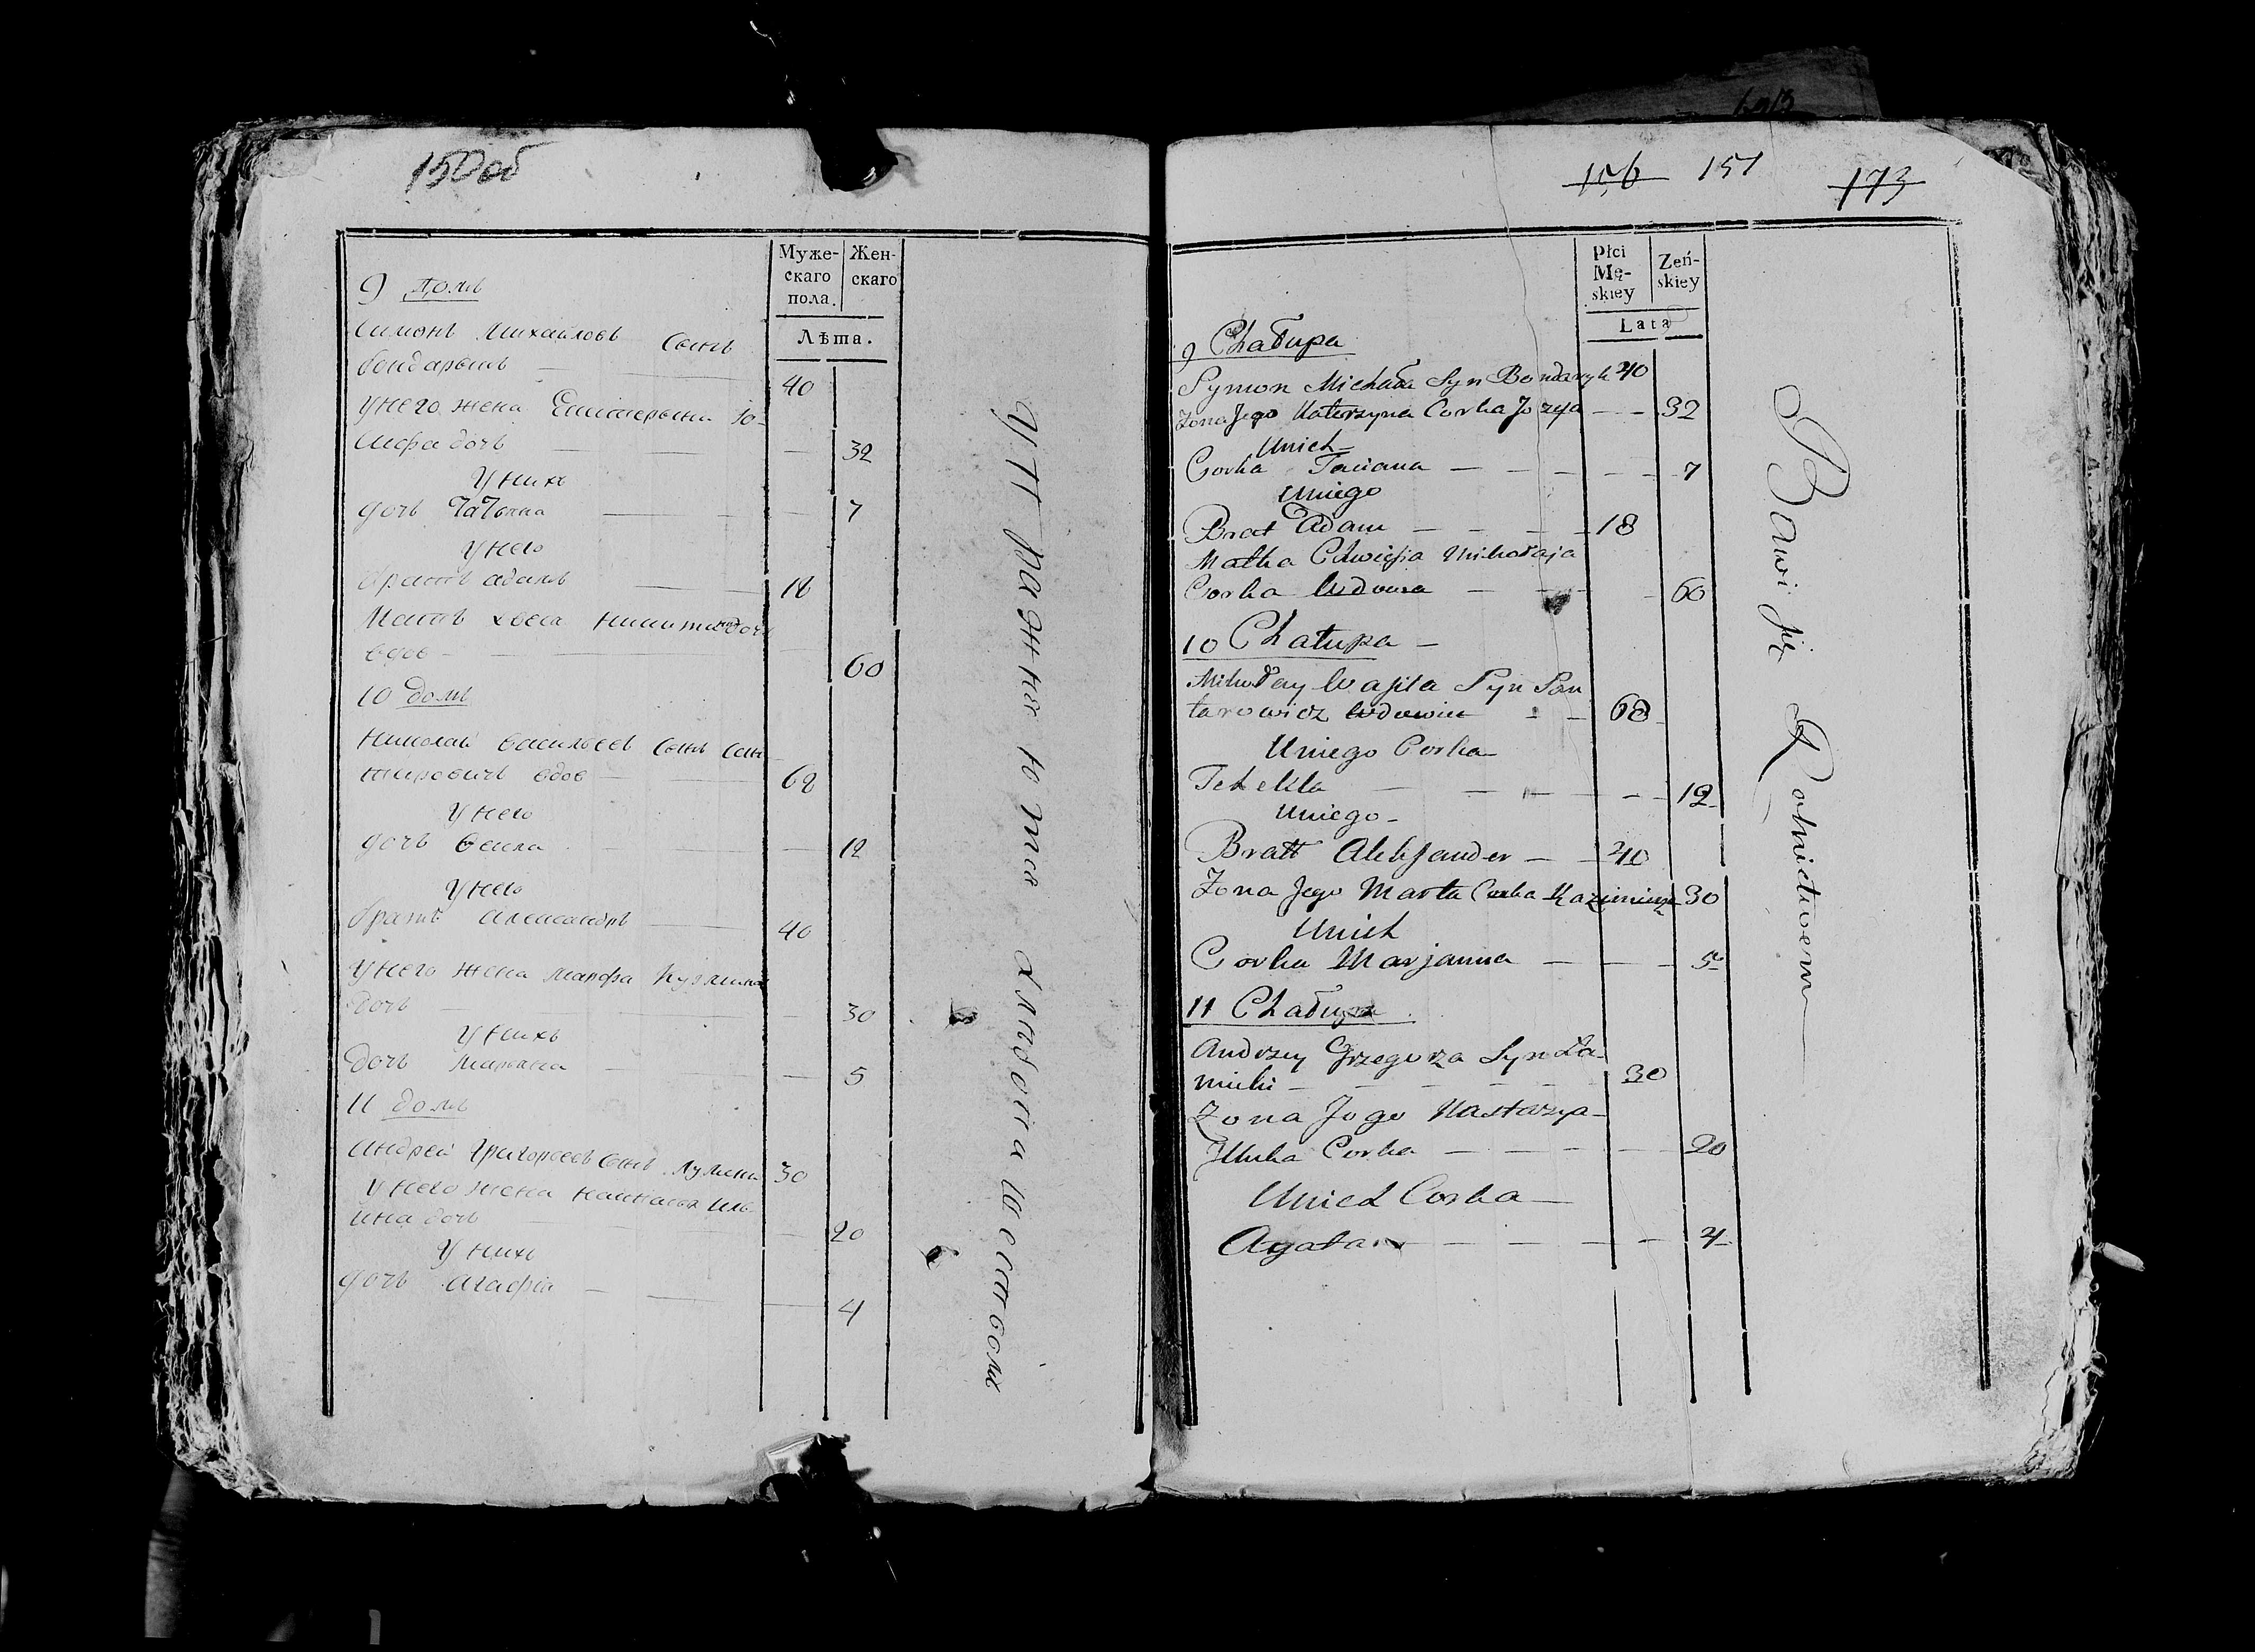 150 об
Муже-
скаго
пола.
Жен-
скаго
Лѣта.
9 домъ
Симонъ Михайловъ Сынъ
бондарыкъ
40
У него жена Екатерына Іо-
сифа дочь
32
У нихъ
дочь Татьяна
7
У него
братъ адамъ
18
Мать хвеся дочь
вдов
60
10 домъ
Николай васильевъ Сынъ Сан
таровичъ вдов
62
У него
дочь Фекла
12
У него
братъ Александръ
40
У него жена Марфа
дочь
30
У нихъ
дочь Марьяна
5
11 домъ
Андрей Григорьевъ Сынъ
30
У него жена Настасья Иль-
ина дочь
20
У нихъ
дочь Агафія
4
156 151 173
Płci
Mę-
skiey
Zeń-
skiey
Lata
9 Chałupa
Symon Michała Syn Bondaryk 40
Zona Jego Katerzyna Corka Jozefa 32
Unich
Corka Taciana 7
Uniego
Brat Adam 18
Matka Chwiesia Mikołaja
Corka wdowa 60
10 Chałupa
Mikołay Wasila Syn San
tarowicz wdowiec 62
Uniego Corka
Tekella 12
Uniego
Bratt Aleksander 40
Zona Jego Marta Corka Kazimierza 30
Unich
Corka Marjanna 5
11 Chałupa
Andrzey Grzegorza Syn
30
Zona Jego Nastazya
Illuka Corka 20
Unich Corka
Agata 4
Bawi się Rolnictwem